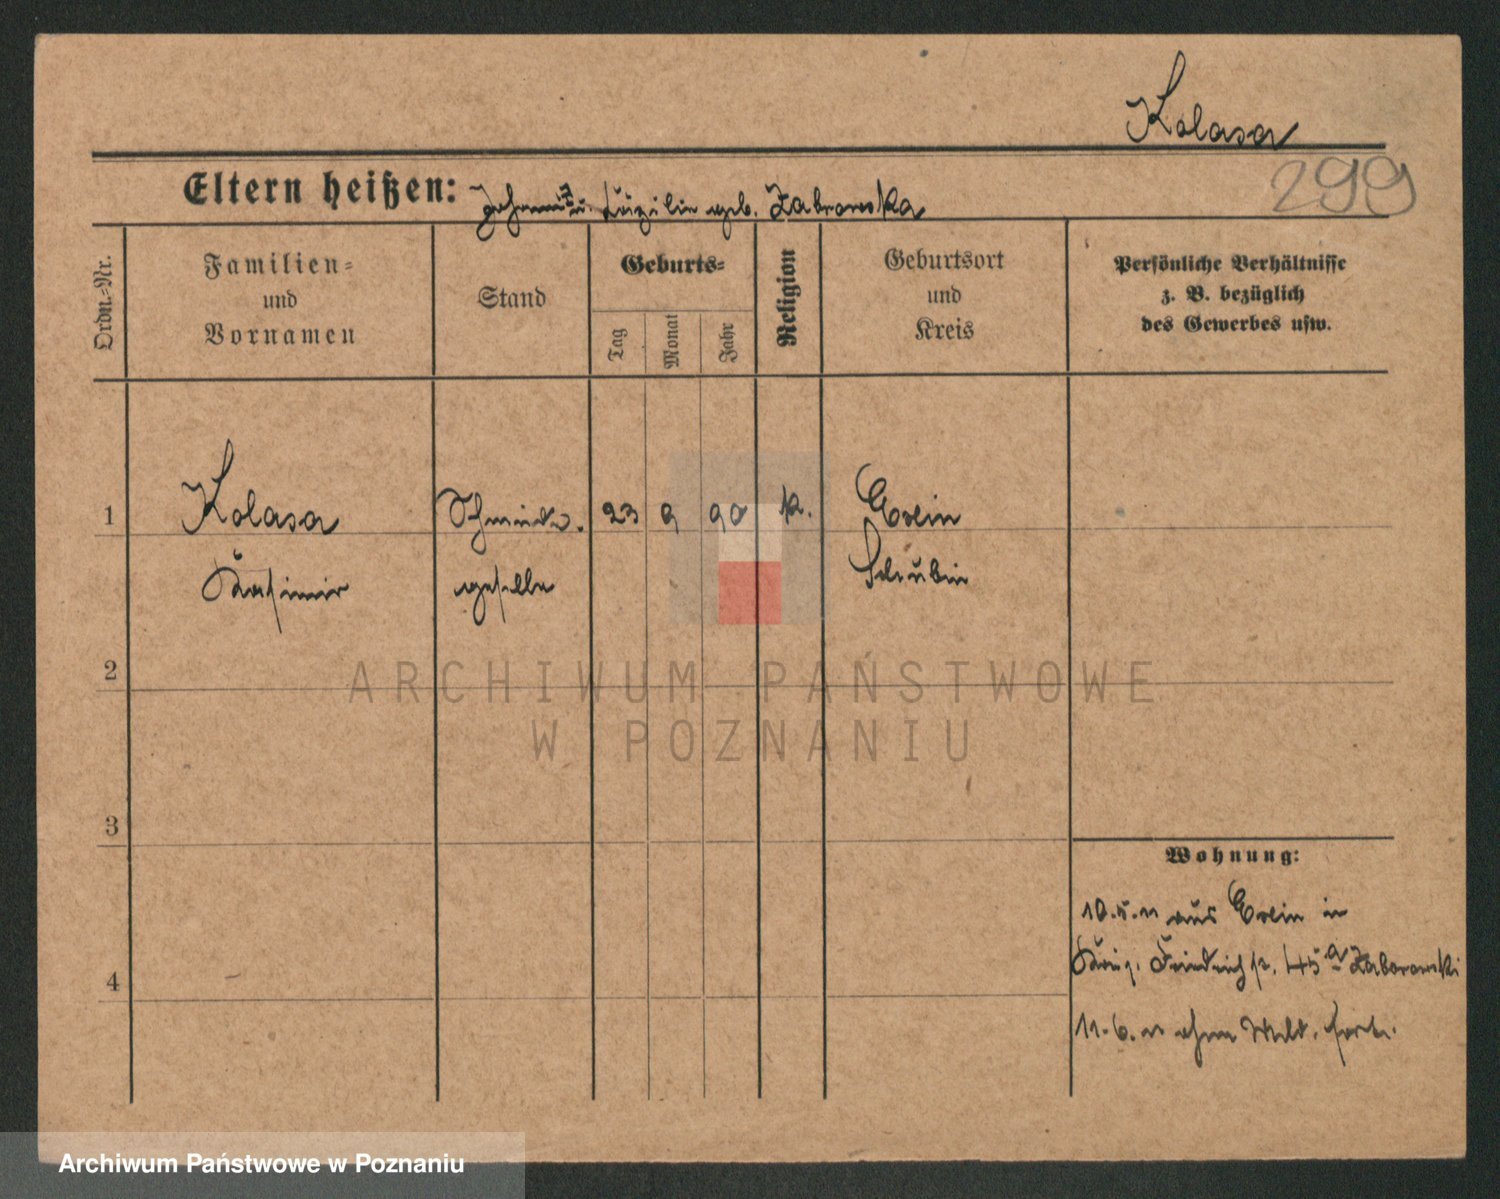 Kolasa
299
Eltern heißen: u. geb. Zabrowska
Ordn.-Nr.
Familien-
und
Vornamen
Stand
Geburts-
Tag
Monat
Jahr
Religion
Geburtsort
und
Kreis
Persönliche Verhältnisse
z. B. bezüglich
des Gewerbes usw.
1
Kolasa
Schmiede-
23
9
90
k.
Exin
Kasimir
geselle
Schubin
2
ARCHIWUM PAŃSTWOWE
W POZNANIU
3
Wohnung:
10.5.11 aus Exin in
Friedrichstr. 45 a Zaborowski
4
11.6.11 ohne Meld. fort.
Archiwum Państwowe w Poznaniu